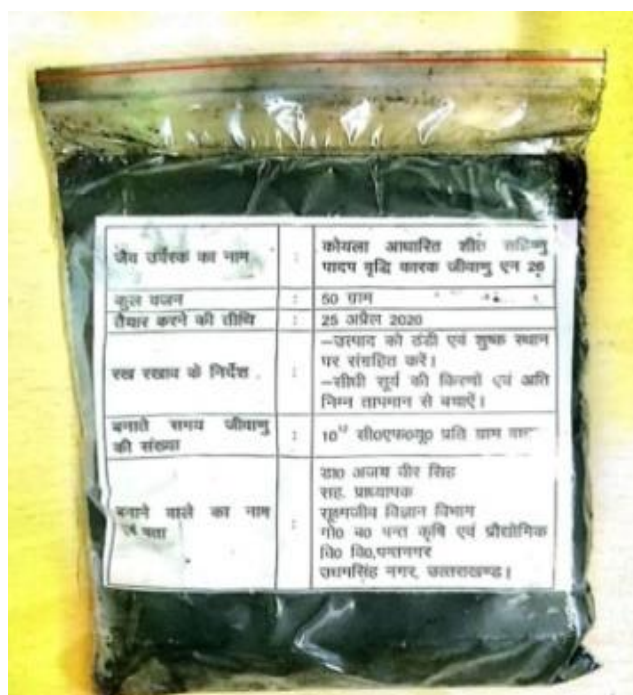 जैव उर्वरक का नाम : कोयला आधारित शीत सहिष्णु
पादप वृद्धि कारक जीवाणु एन 26
कुल वजन : 50 ग्राम
तैयार करने की तीथि : 25 अप्रैल 2020
रख रखाव के निर्देश : –उत्पाद को ठंडी एवं शुष्क स्थान
पर संग्रहित करें।
–सीधी सूर्य की किरणों एवं अति
निम्न तापमान से बचाऐं।
बनाते समय जीवाणु
की संख्या : सी0एफ0यू0 प्रति ग्राम
बनाने वाले का नाम
एवं पता : डा0 अजय वीर सिंह
सह. प्राध्यापक
सूक्ष्मजीव विज्ञान विभाग
गो0 ब0 पन्त कृषि एवं प्रौद्योगिक
वि0 वि0,पन्तनगर
उधमसिंह नगर, उत्तराखण्ड।